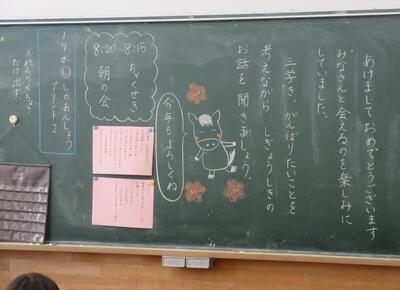 あけまして おめでとうございます
みなさんと会えるのを楽しみに
していました。
三学き、がんばりたいことを
考えながら しぎょうしきの
お話を聞きましょう。
今年もよろしくね
8:15 ちゃくせき
8:20 朝の会
1/7 水
しのあんしょう
プリント2
※れんらくちょう
だけ出す。